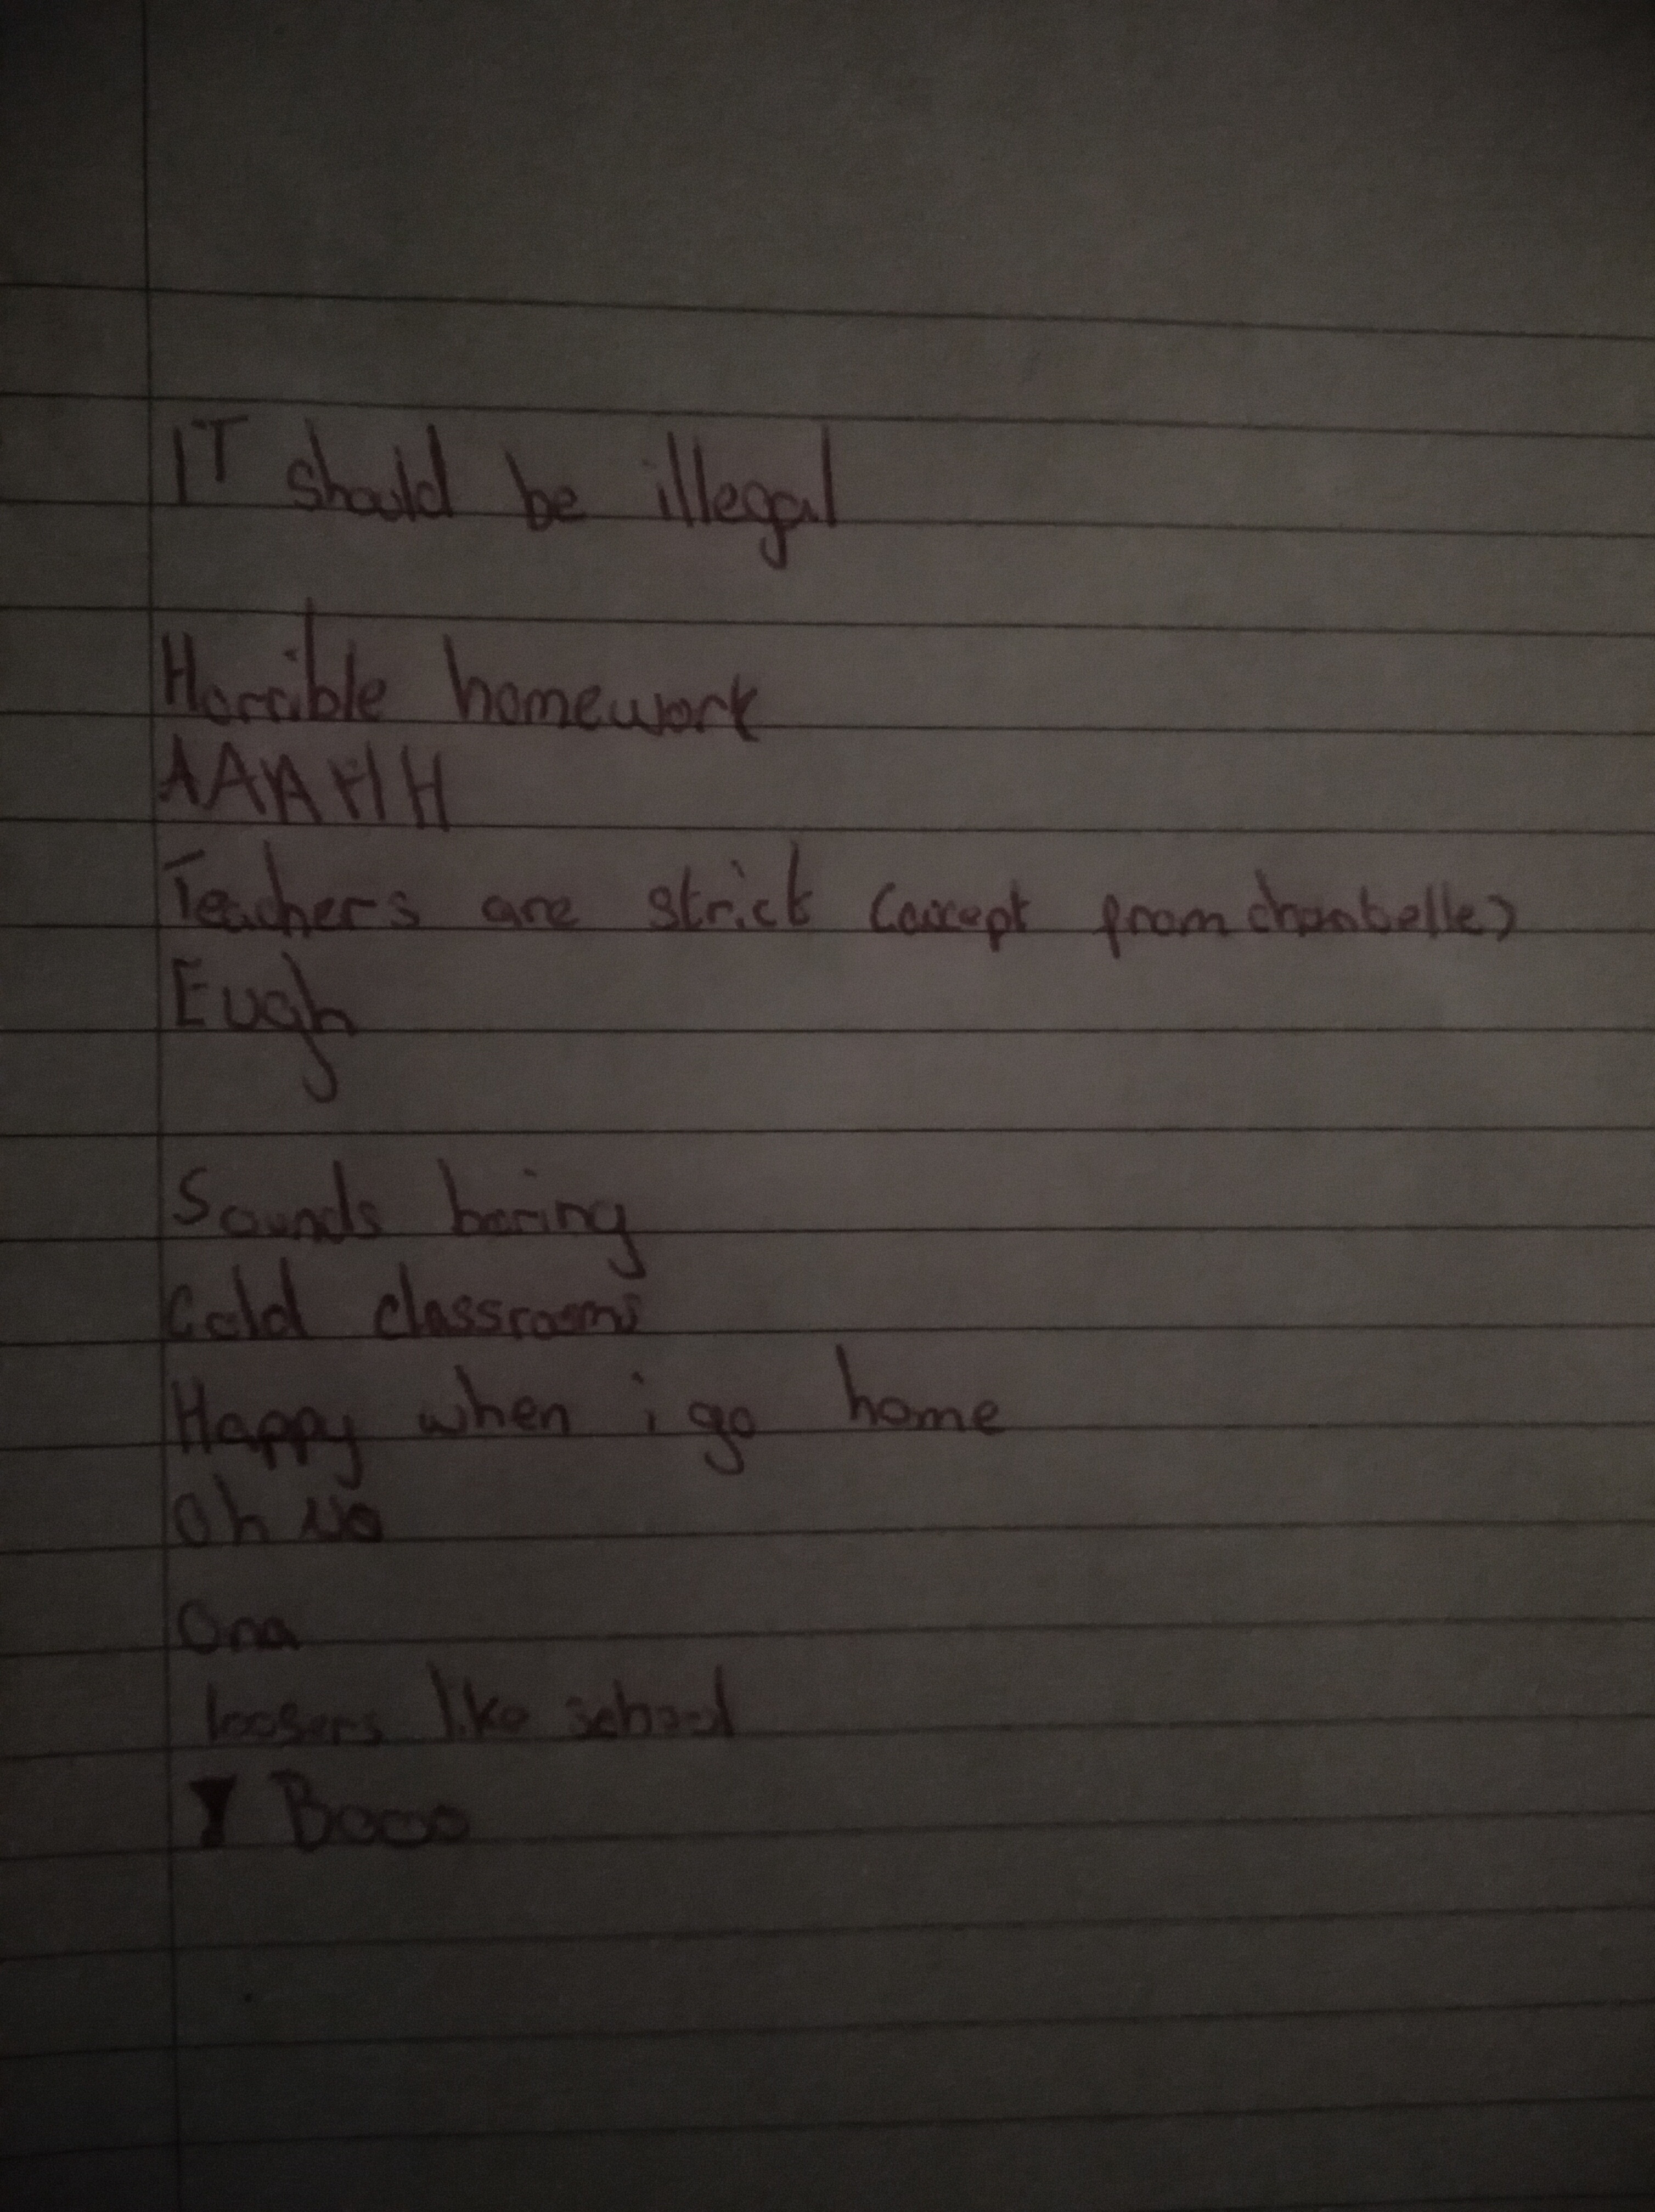 IT should be illegal
Horrible homework
AAAHH
Teachers are strict (accept from chantelle)
Eugh
Sounds boring
Cold classrooms
Happy when i go home
Oh No
Ona
loosers like school
Booo